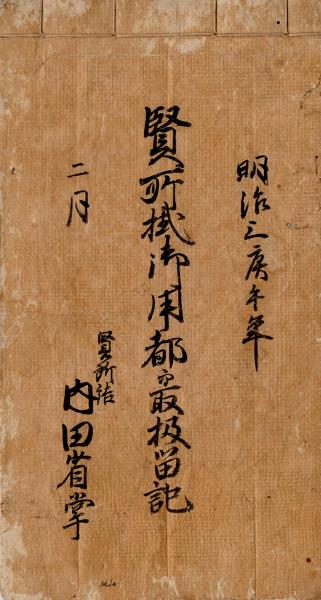 明治三庚午年
賢所掛御用都而取扱留記
二月
賢所詰
内田省掌